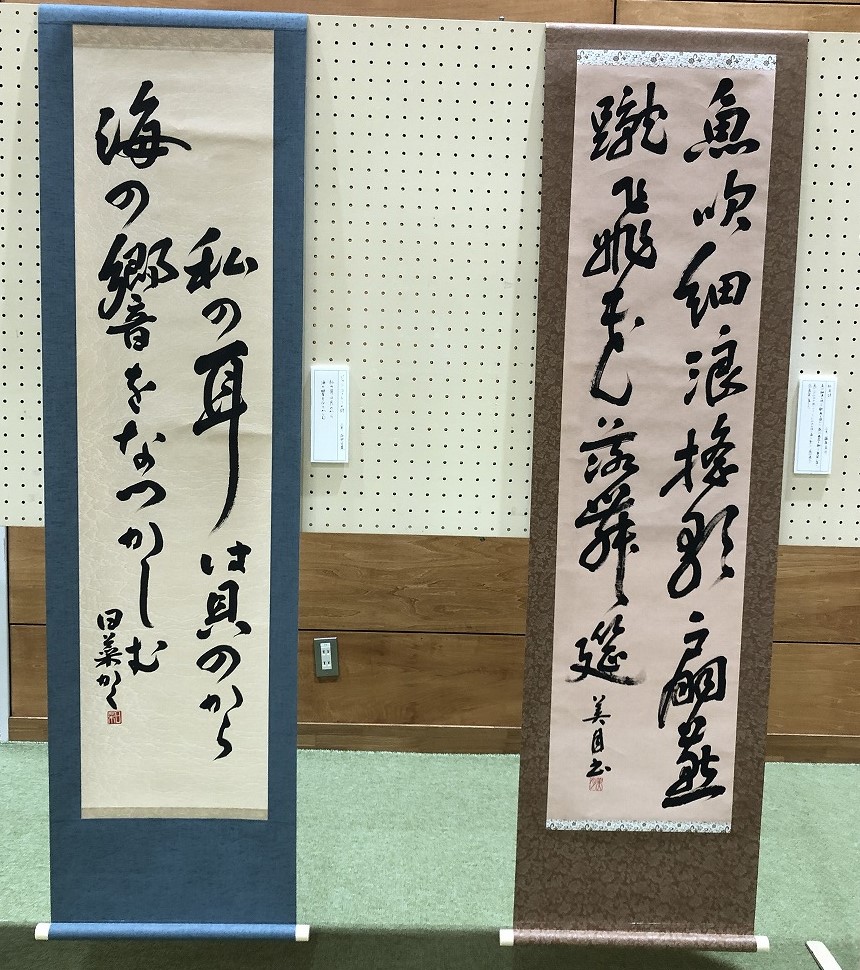 魚吹細浪搖歌扇燕
蹴飛花落舞筵
美月书
私の耳は貝のから
海の響をなつかしむ
日菜かく